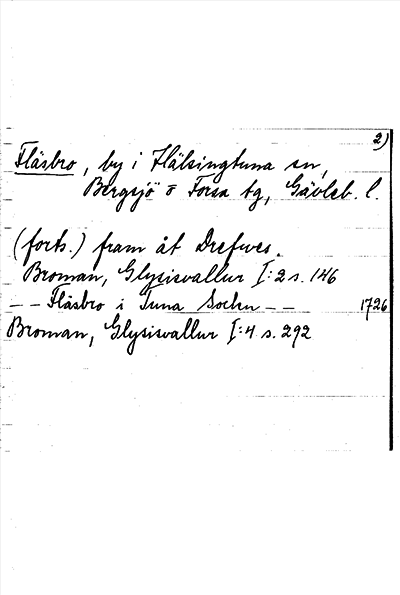 2)
Fläsbro, by i Hälsingtuna sn,
Bergsjö o Forsa tg, Gävleb. l.
(forts.) fram åt Drefwes.
Broman, Glysisvallur I:2 s. 146
-- Fläsbro i Tuna Sockn -- 1726
Broman, Glysisvallur I:4 s. 292